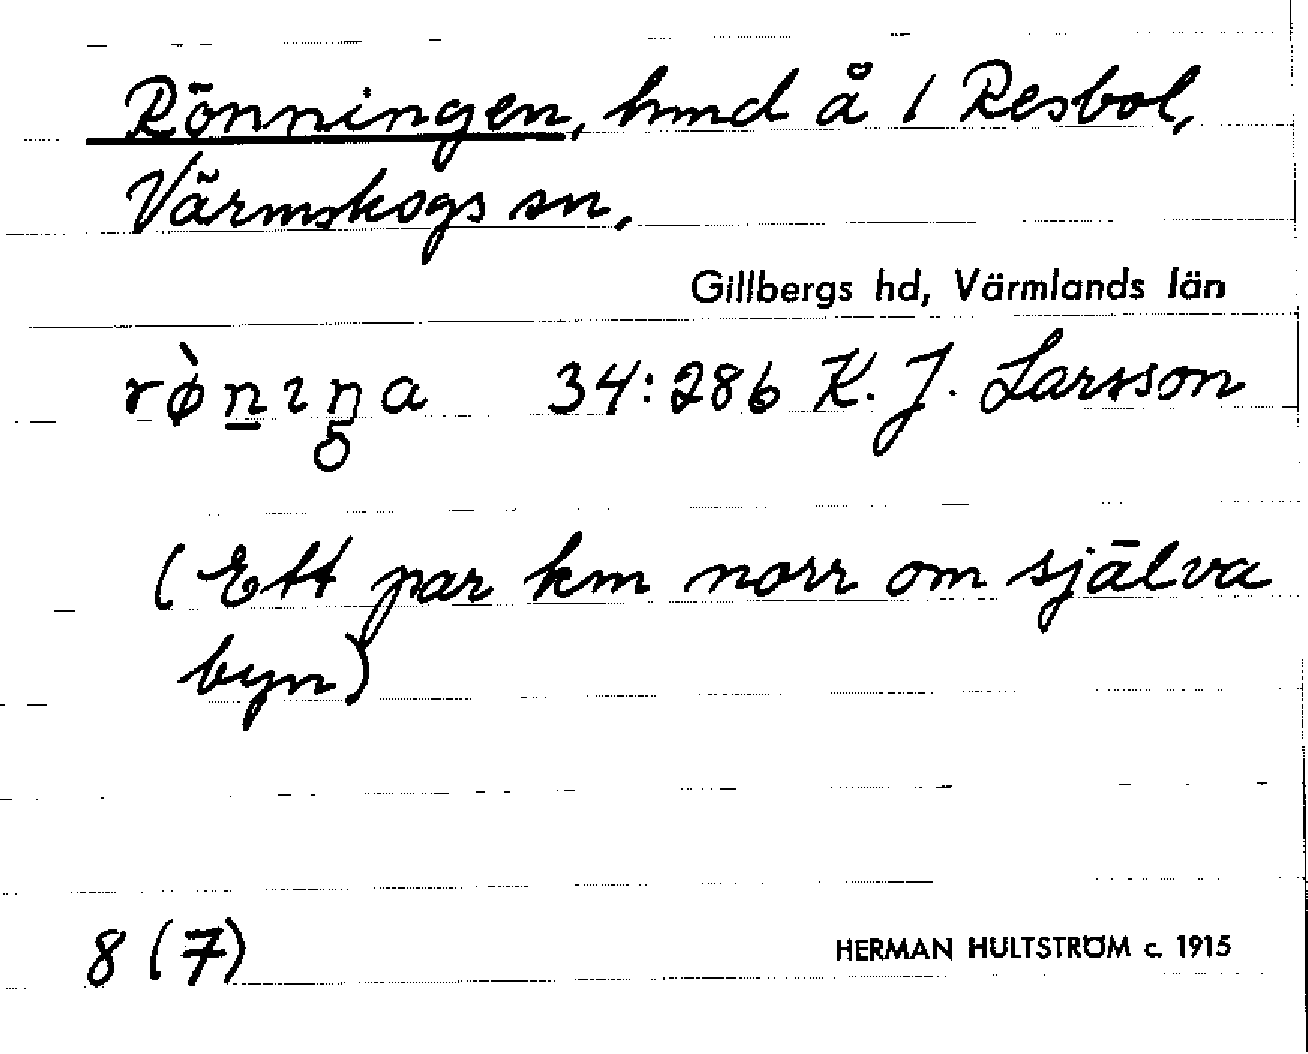 Rönningen, hmd å 1 Resbol,
Värmskogs sn,
Gillbergs hd, Värmlands län
rø̀n̲ıŋ̥a 34:286 K. J. Larsson
(Ett par km norr om själva
byn)
8 (7) HERMAN HULTSTRÖM c. 1915